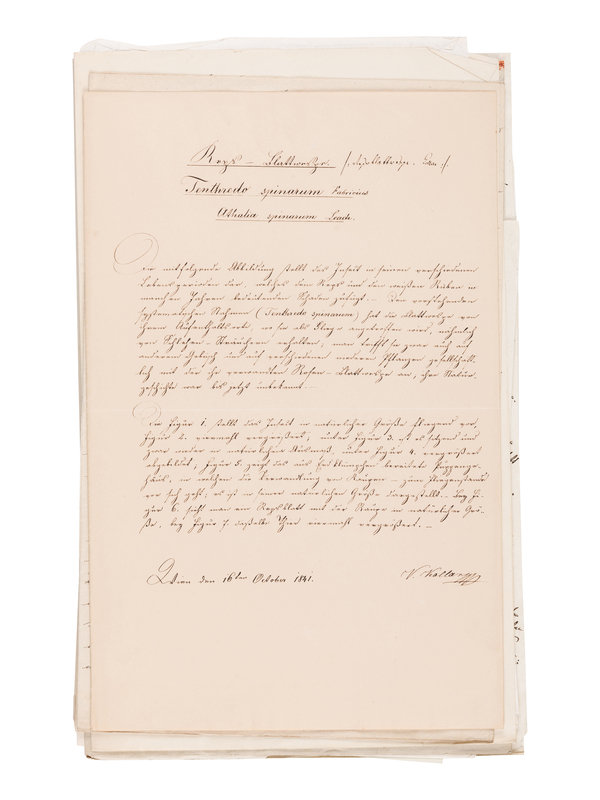 Reps – Blattwespe.
Tenthredo spinarum Fabricius
Athalia spinarum Leach.
Die mitfolgende Abbildung stellt das Insekt in seinen verschiedenen
Lebensperioden dar, welches dem Reps und den weißen Rüben in
manchen Jahren bedeutenden Schaden zufügt. – Den vorstehenden
systematischen Nahmen (Tenthredo spinarum) hat die Blattwespe von
ihrem Aufenthaltsorte, wo sie als Fliege angetroffen wird, nähmlich
von Schlehen-Sträuchern erhalten; man trifft sie zwar auch auf
anderem Gebüsch und auf verschiedenen anderen Pflanzen gesellschaft-
lich mit der ihr verwandten Rosen-Blattwespe an, ihre Natur-
geschichte war bis jetzt unbekannt. –
Die Figur 1. stellt das Insekt in natürlicher Größe fliegend vor,
Figur 2. vergrößert; unter Figur 3. ist es sitzend und
zwar wieder in natürlichem Ausmaß, unter Figur 4. vergrößert
abgebildet; Figur 5. zeigt das aus Erdklümpchen bereitete Puppenge-
häus, in welchem die Verwandlung von Raupen – zum Fliegenstande
vor sich geht, es ist in seiner natürlichen Größe dargestellt. – Bey Fi-
gur 6. sieht man ein Repsblatt mit der Raupe in natürlicher Grö-
ße, bey Figur 7. dasselbe Thier vergrößert. –
Wien den 16ten October 1841.
V. Kollar